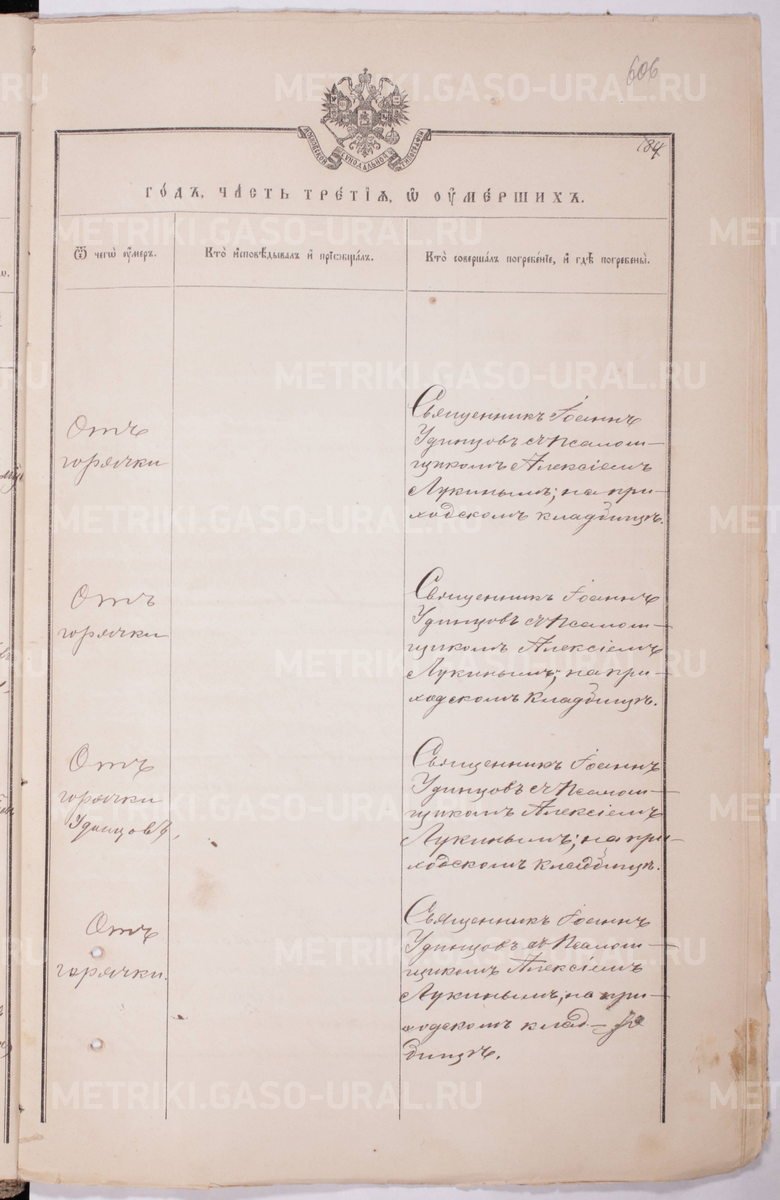 606
184
МОСКОВСКОЙ СѴНОДАЛЬНОЙ ТИПОГРАФІИ
ГО́ДЪ, ЧА́СТЬ ТРЕ́ТІѦ, Ѡ҆ ОУ҆МЕ́РШИХЪ.
Ѿ чегѡ̀ оу҆́меръ.
Кто̀ и҆сповѣ́дывалъ и҆ прїѡбща́лъ.
Кто̀ соверша́лъ погребе́нїе, и҆ гдѣ̀ погребены̀.
Отъ
горячки
Священникъ Іоаннъ
Удинцовъ съ Псалом-
щикомъ Алексіемъ
Лукинымъ; на при-
ходскомъ кладбищѣ.
Отъ
горячки
Священникъ Іоаннъ
Удинцовъ съ Псалом-
щикомъ Алексіемъ
Лукинымъ; на при-
ходскомъ кладбищѣ.
Отъ
горячки
Удинцовъ,
Священникъ Іоаннъ
Удинцовъ съ Псалом-
щикомъ Алексіемъ
Лукинымъ; на при-
ходскомъ кладбищѣ.
Отъ
горячки.
Священникъ Іоаннъ
Удинцовъ съ Псалом-
щикомъ Алексіемъ
Лукинымъ; на при-
ходскомъ клад-
бищѣ.
METRIKI.GASO-URAL.RU